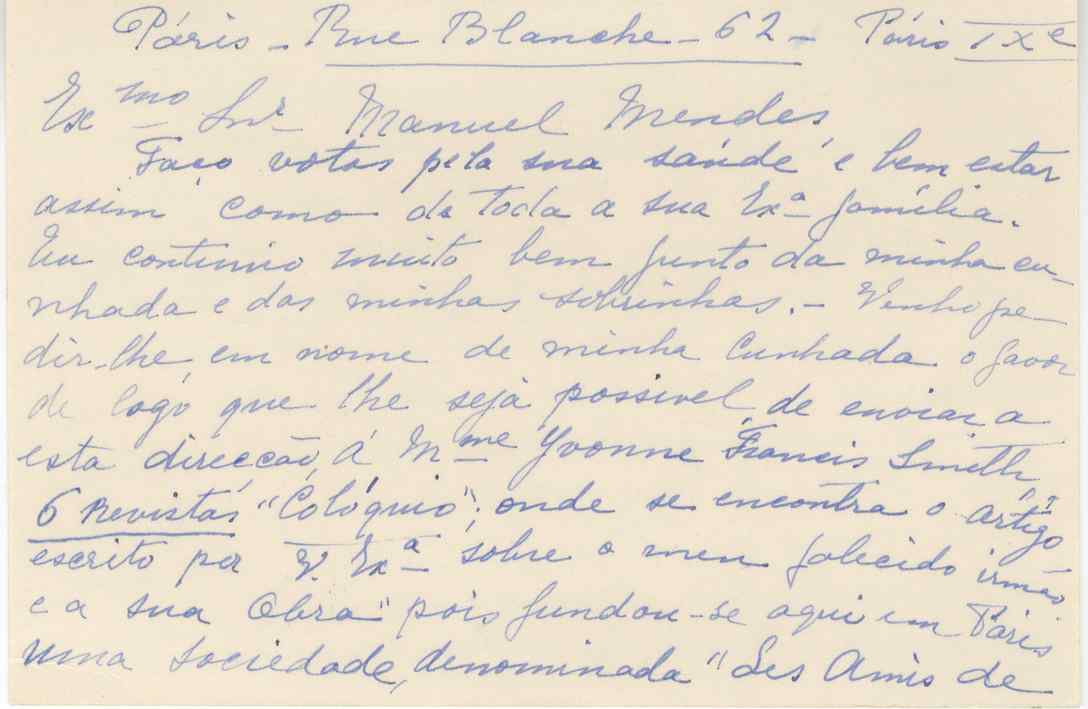 Páris - Rue Blanche - 62 - Páris IXe
Exmo Snr Manuel Mendes,
Faço votos pela sua saúde e bem estar
assim como da toda a sua Exª família.
Eu continúo muito bem junto da minha cu-
nhada e das minhas sobrinhas. - Venho pe-
dir-lhe, em nome de minha Cunhada o favor
de logo que lhe seja possivel, de enviar, a
esta direcção, á Mme Yvonne Francis Smith
6 Revistas "Colóquio"; onde se encontra o artigo
escrito por V. Exª sobre o meu falecido irmão
e a sua Obra" pois fundou-se aqui em Páris
uma sociedade, denominada "Les Amis de